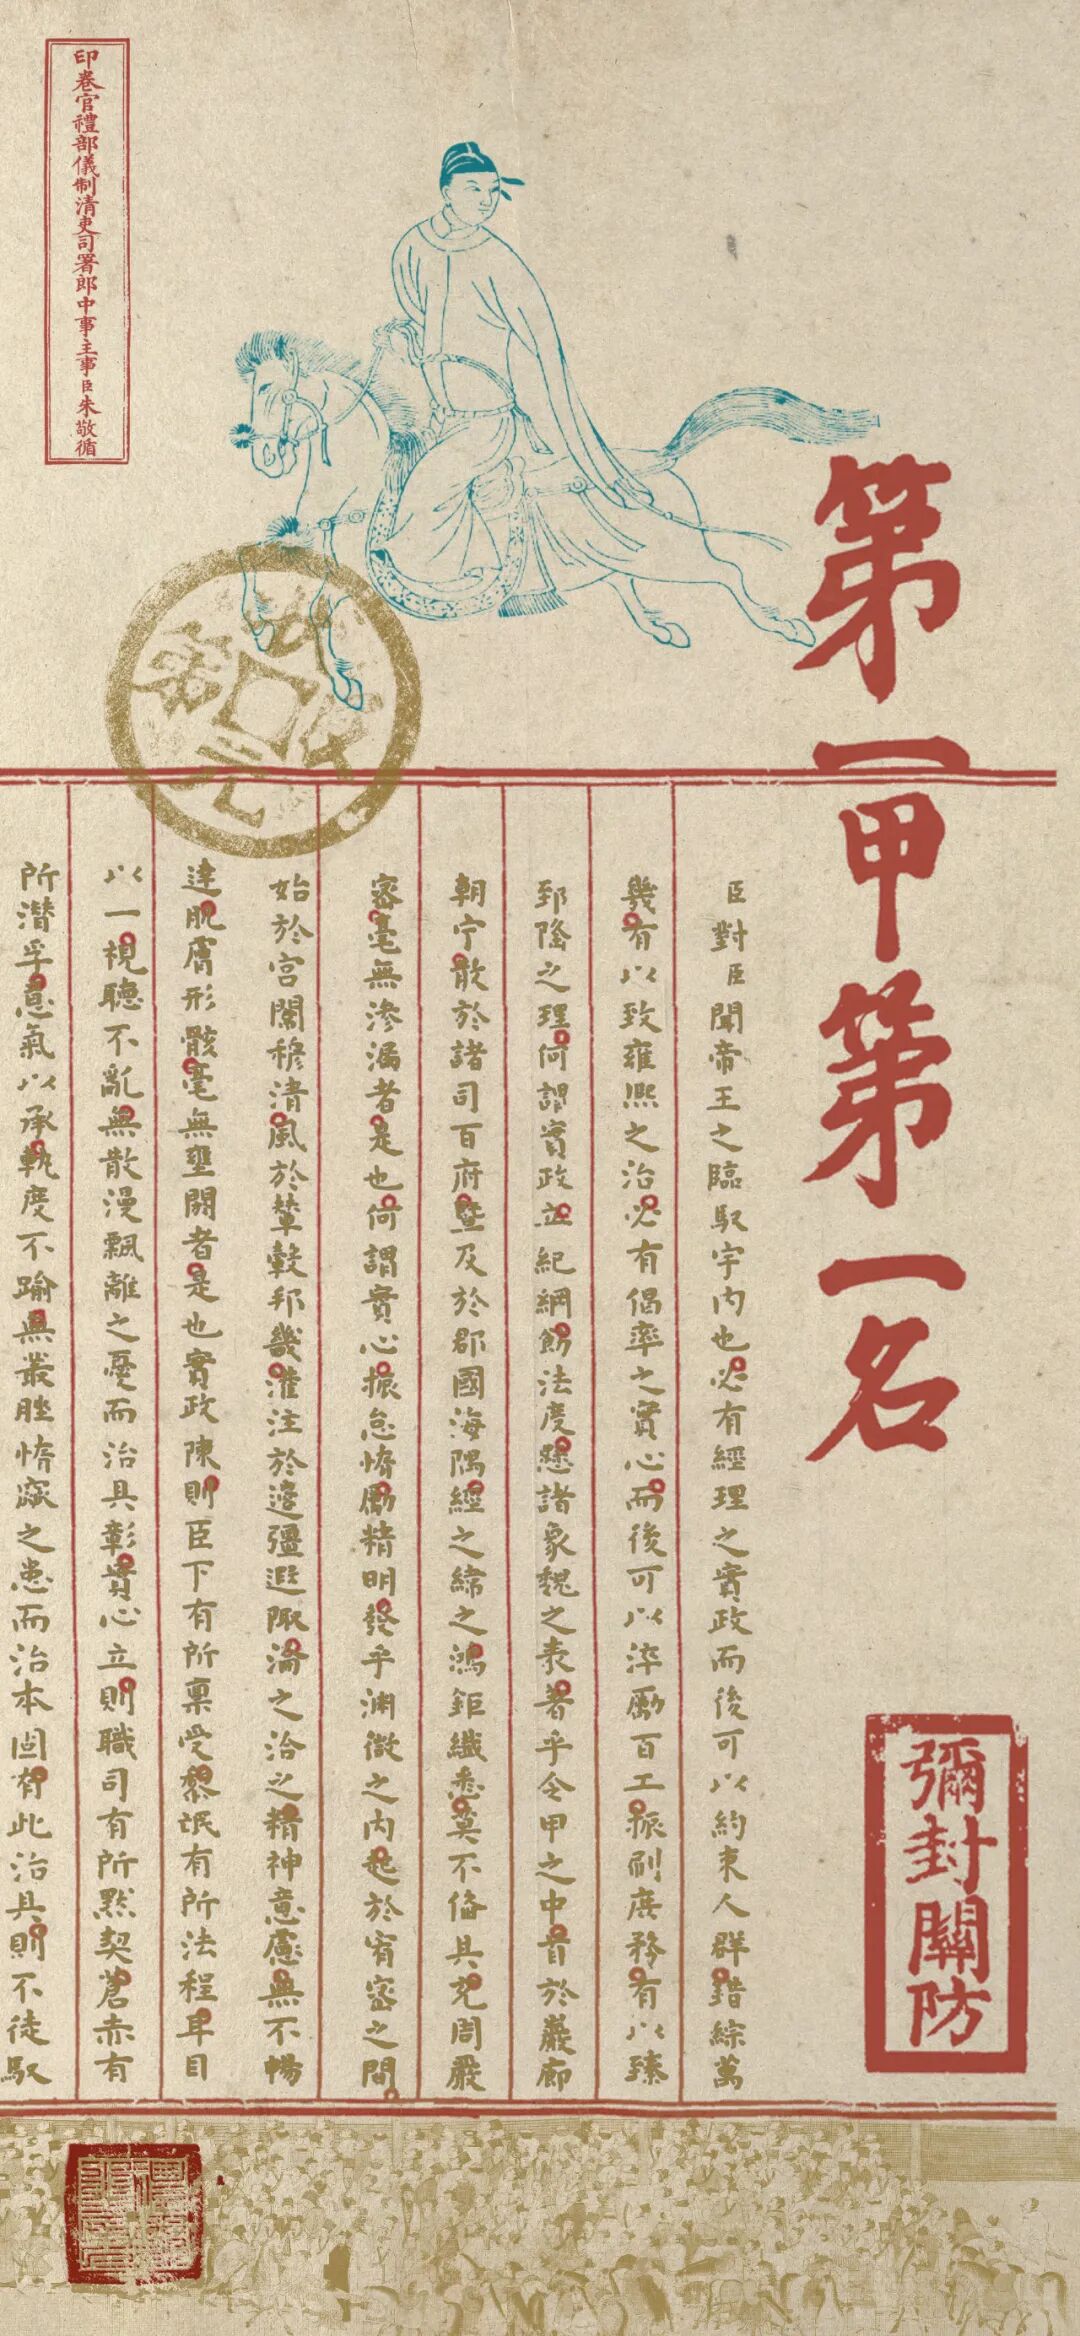 第一甲第一名
彌封關防
臣對臣聞帝王之臨馭宇内也必有經理之實政而後可以約束人群錯綜萬
幾有以致雍熙之治必有倡率之實心而後可以淬勵百工振刷庶務有以臻
郅隆之理何謂實政立紀綱飭法度懸諸象魏之表著乎令甲之中首於巖廊
朝宁散於諸司百府暨及於郡國海隅經之緯之鴻鉅纖悉莫不俻具充周嚴
密毫無滲漏者是也何謂實心振怠惰勵精明發乎淵微之内起於宥密之間
始於宮闈穆清風於輦轂邦畿灌注於邊疆遐陬淪之洽之精神意慮無不暢
達肌膚形骸毫無壅閼者是也實政陳則臣下有所稟受黎氓有所法程耳目
以一視聽不亂無散漫飄離之憂而治具彰實心立則職司有所默契蒼赤有
所潛孚意氣以承軌度不踰無叢脞惰窳之患而治本固有此治具則不徒馭
印卷官禮部儀制清吏司署郎中事主事臣朱敬循